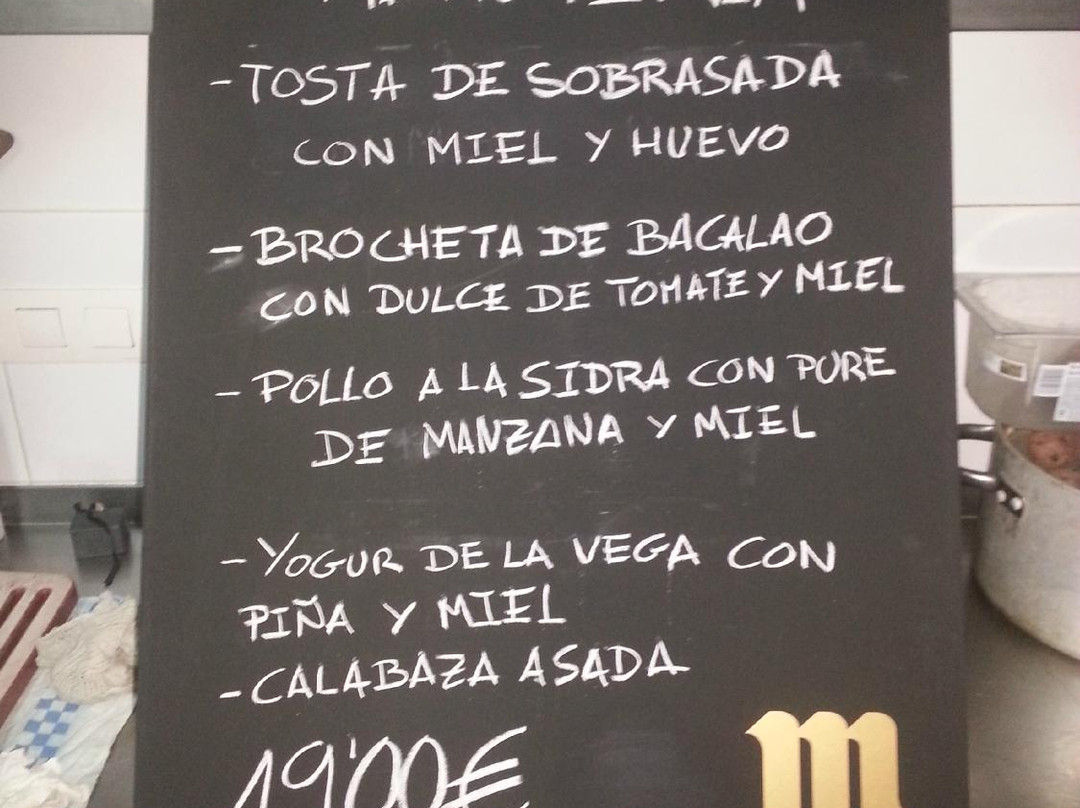 -TOSTA DE SOBRASADA
CON MIEL Y HUEVO
-BROCHETA DE BACALAO
CON DULCE DE TOMATE Y MIEL
-POLLO A LA SIDRA CON PURE
DE MANZANA Y MIEL
-YOGUR DE LA VEGA CON
PIÑA Y MIEL
-CALABAZA ASADA
19'00€
m